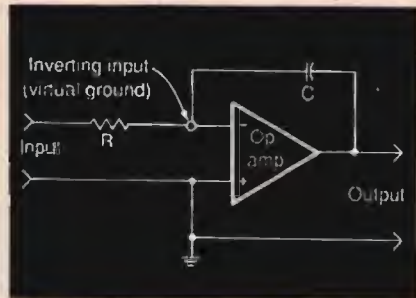 Inverting input
(virtual ground)
C
R
Input
−
Op
amp
+
Output